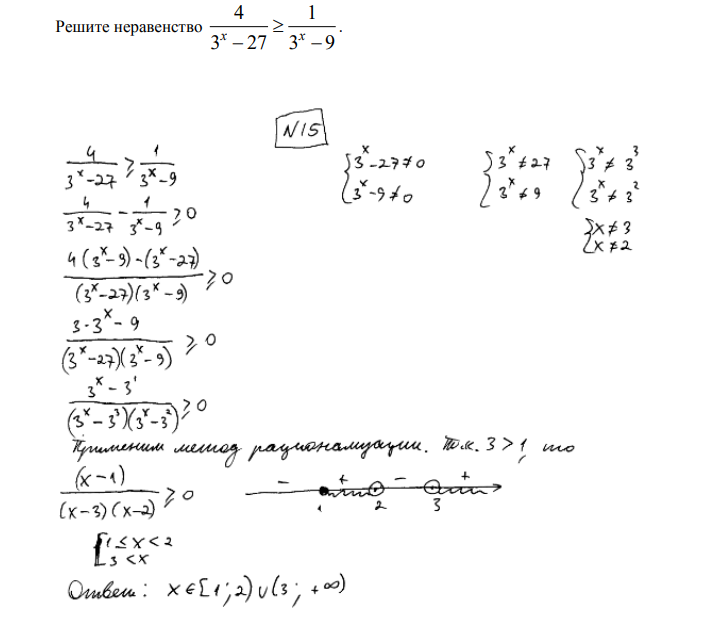 Решите неравенство 4/(3^x − 27) ≥ 1/(3^x − 9).
N15
4/(3^x-27) ≥ 1/(3^x-9)
{3^x-27≠0
{3^x-9≠0
{3^x≠27
{3^x≠9
{3^x≠3^3
{3^x≠3^2
{x≠3
{x≠2
4/(3^x-27) - 1/(3^x-9) ≥ 0
(4(3^x-9)-(3^x-27))/((3^x-27)(3^x-9)) ≥ 0
(3·3^x-9)/((3^x-27)(3^x-9)) ≥ 0
(3^x-3^1)/((3^x-3^3)(3^x-3^2)) ≥ 0
Применим метод рационализации. Т.к. 3>1, то
(x-1)/((x-3)(x-2)) ≥ 0
- + - +
1 2 3
[1≤x<2
[3<x
Ответ: x∈[1;2)∪(3;+∞)